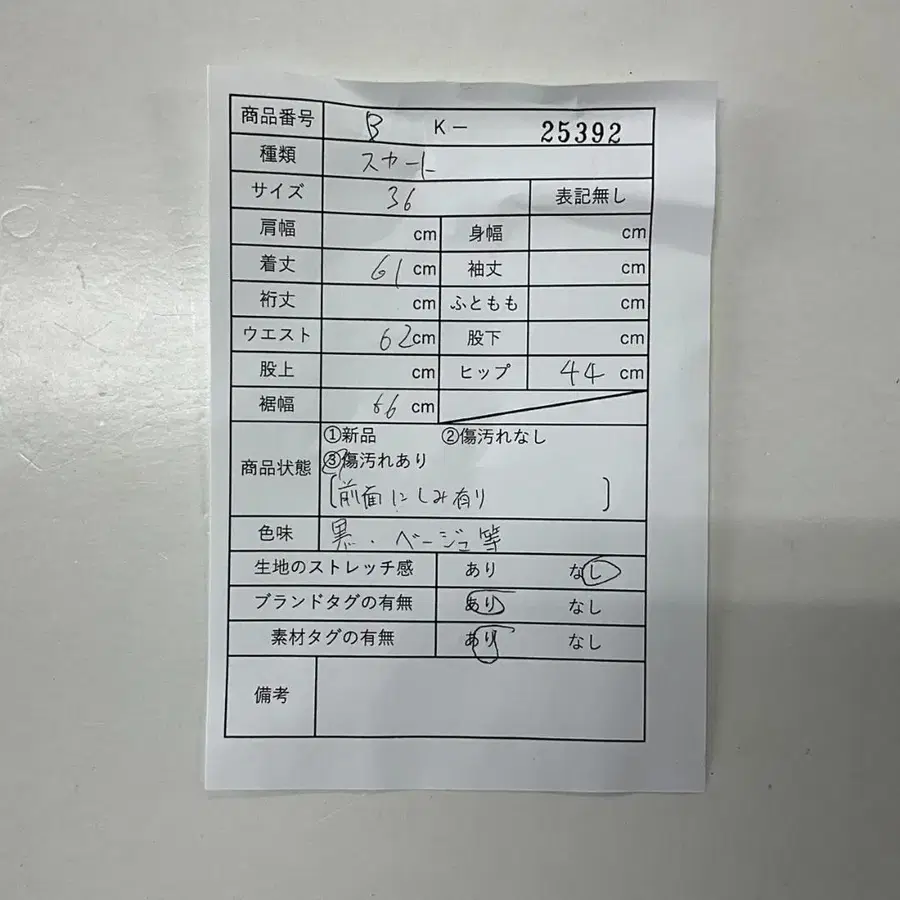 商品番号 B K－ 25392
種類 スカート
サイズ 36 表記無し
肩幅 cm 身幅 cm
着丈 61 cm 袖丈 cm
裄丈 cm ふともも cm
ウエスト 62cm 股下 cm
股上 cm ヒップ 44 cm
裾幅 66 cm
商品状態 ①新品 ②傷汚れなし
③傷汚れあり
[前面にしみ有り ]
色味 黒．ベージュ等
生地のストレッチ感 あり なし
ブランドタグの有無 あり なし
素材タグの有無 あり なし
備考